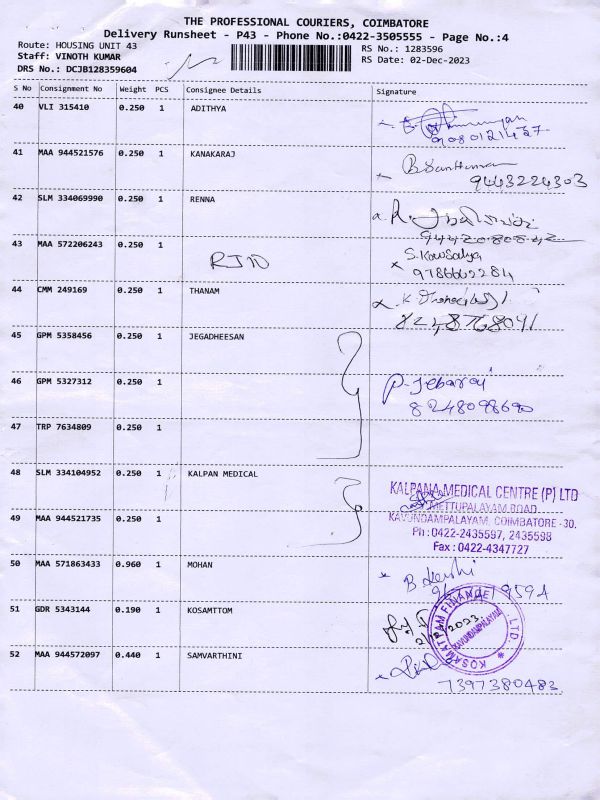 THE PROFESSIONAL COURIERS, COIMBATORE
Delivery Runsheet - P43 - Phone No.:0422-3505555 - Page No.:4
Route: HOUSING UNIT 43
Staff: VINOTH KUMAR
DRS No.: DCJB128359604
RS No.: 1283596
RS Date: 02-Dec-2023
S No Consignment No Weight PCS Consignee Details Signature
40 VLI 315410 0.250 1 ADITHYA
41 MAA 944521576 0.250 1 KANAKARAJ
9443224303
42 SLM 334069990 0.250 1 RENNA
43 MAA 572206243 0.250 1
S. Kowsalya
9786602284
44 CMM 249169 0.250 1 THANAM
45 GPM 5358456 0.250 1 JEGADHEESAN
46 GPM 5327312 0.250 1
P. Jebaraj
8248098690
47 TRP 7634809 0.250 1
48 SLM 334104952 0.250 1 KALPAN MEDICAL
KALPANA MEDICAL CENTRE (P) LTD
METTUPALAYAM ROAD
KAVUNDAMPALAYAM, COIMBATORE - 30.
Ph : 0422-2435597, 2435598
Fax : 0422-4347727
49 MAA 944521735 0.250 1
50 MAA 571863433 0.960 1 MOHAN
51 GDR 5343144 0.190 1 KOSAMTTOM
KOSAMATTAM FINANCE LTD.
KAVUNDAMPALAYAM
52 MAA 944572097 0.440 1 SAMVARTHINI
7397380483